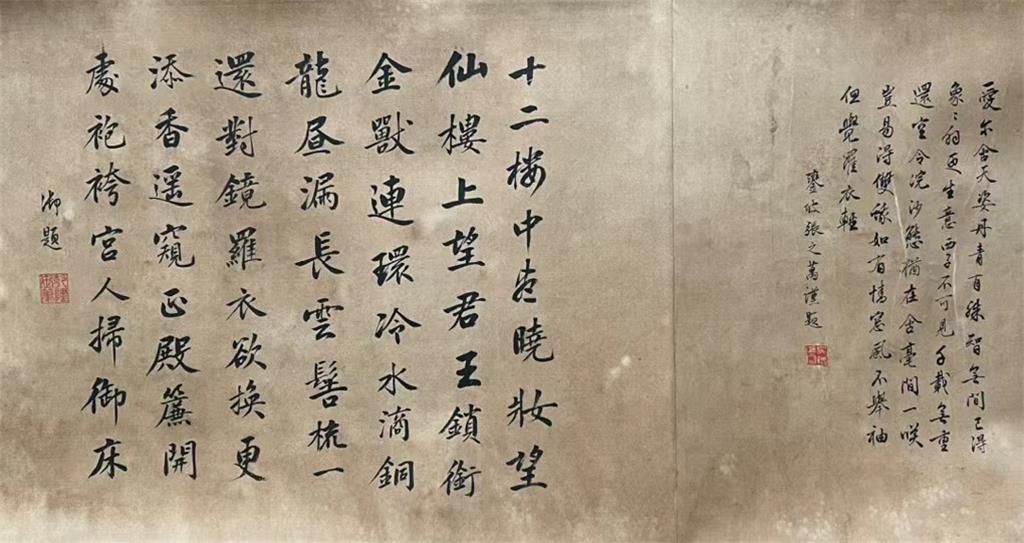 愛尔含天姿丹青有殊智無間已得
象〻外更生意西子不可見千載無重
還空令浣沙態猶在含毫間一咲
豈易得雙蛾如有情窓風不舉袖
但覺羅衣輕
鑾坡張之萬謹題
十二楼中尽曉妝望
仙樓上望君王鎖銜
金獸連環冷水滴銅
龍昼漏長雲髻梳一
還對鏡羅衣欲換更
添香遥窺正殿簾開
處袍袴宮人掃御床
御題